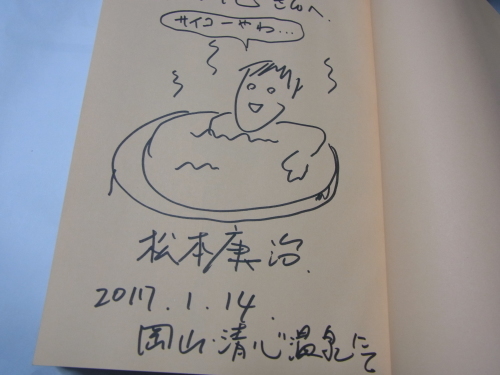 さんへ.
サイコーやわ…
松本康治.
2017.1.14.
岡山・清心温泉にて